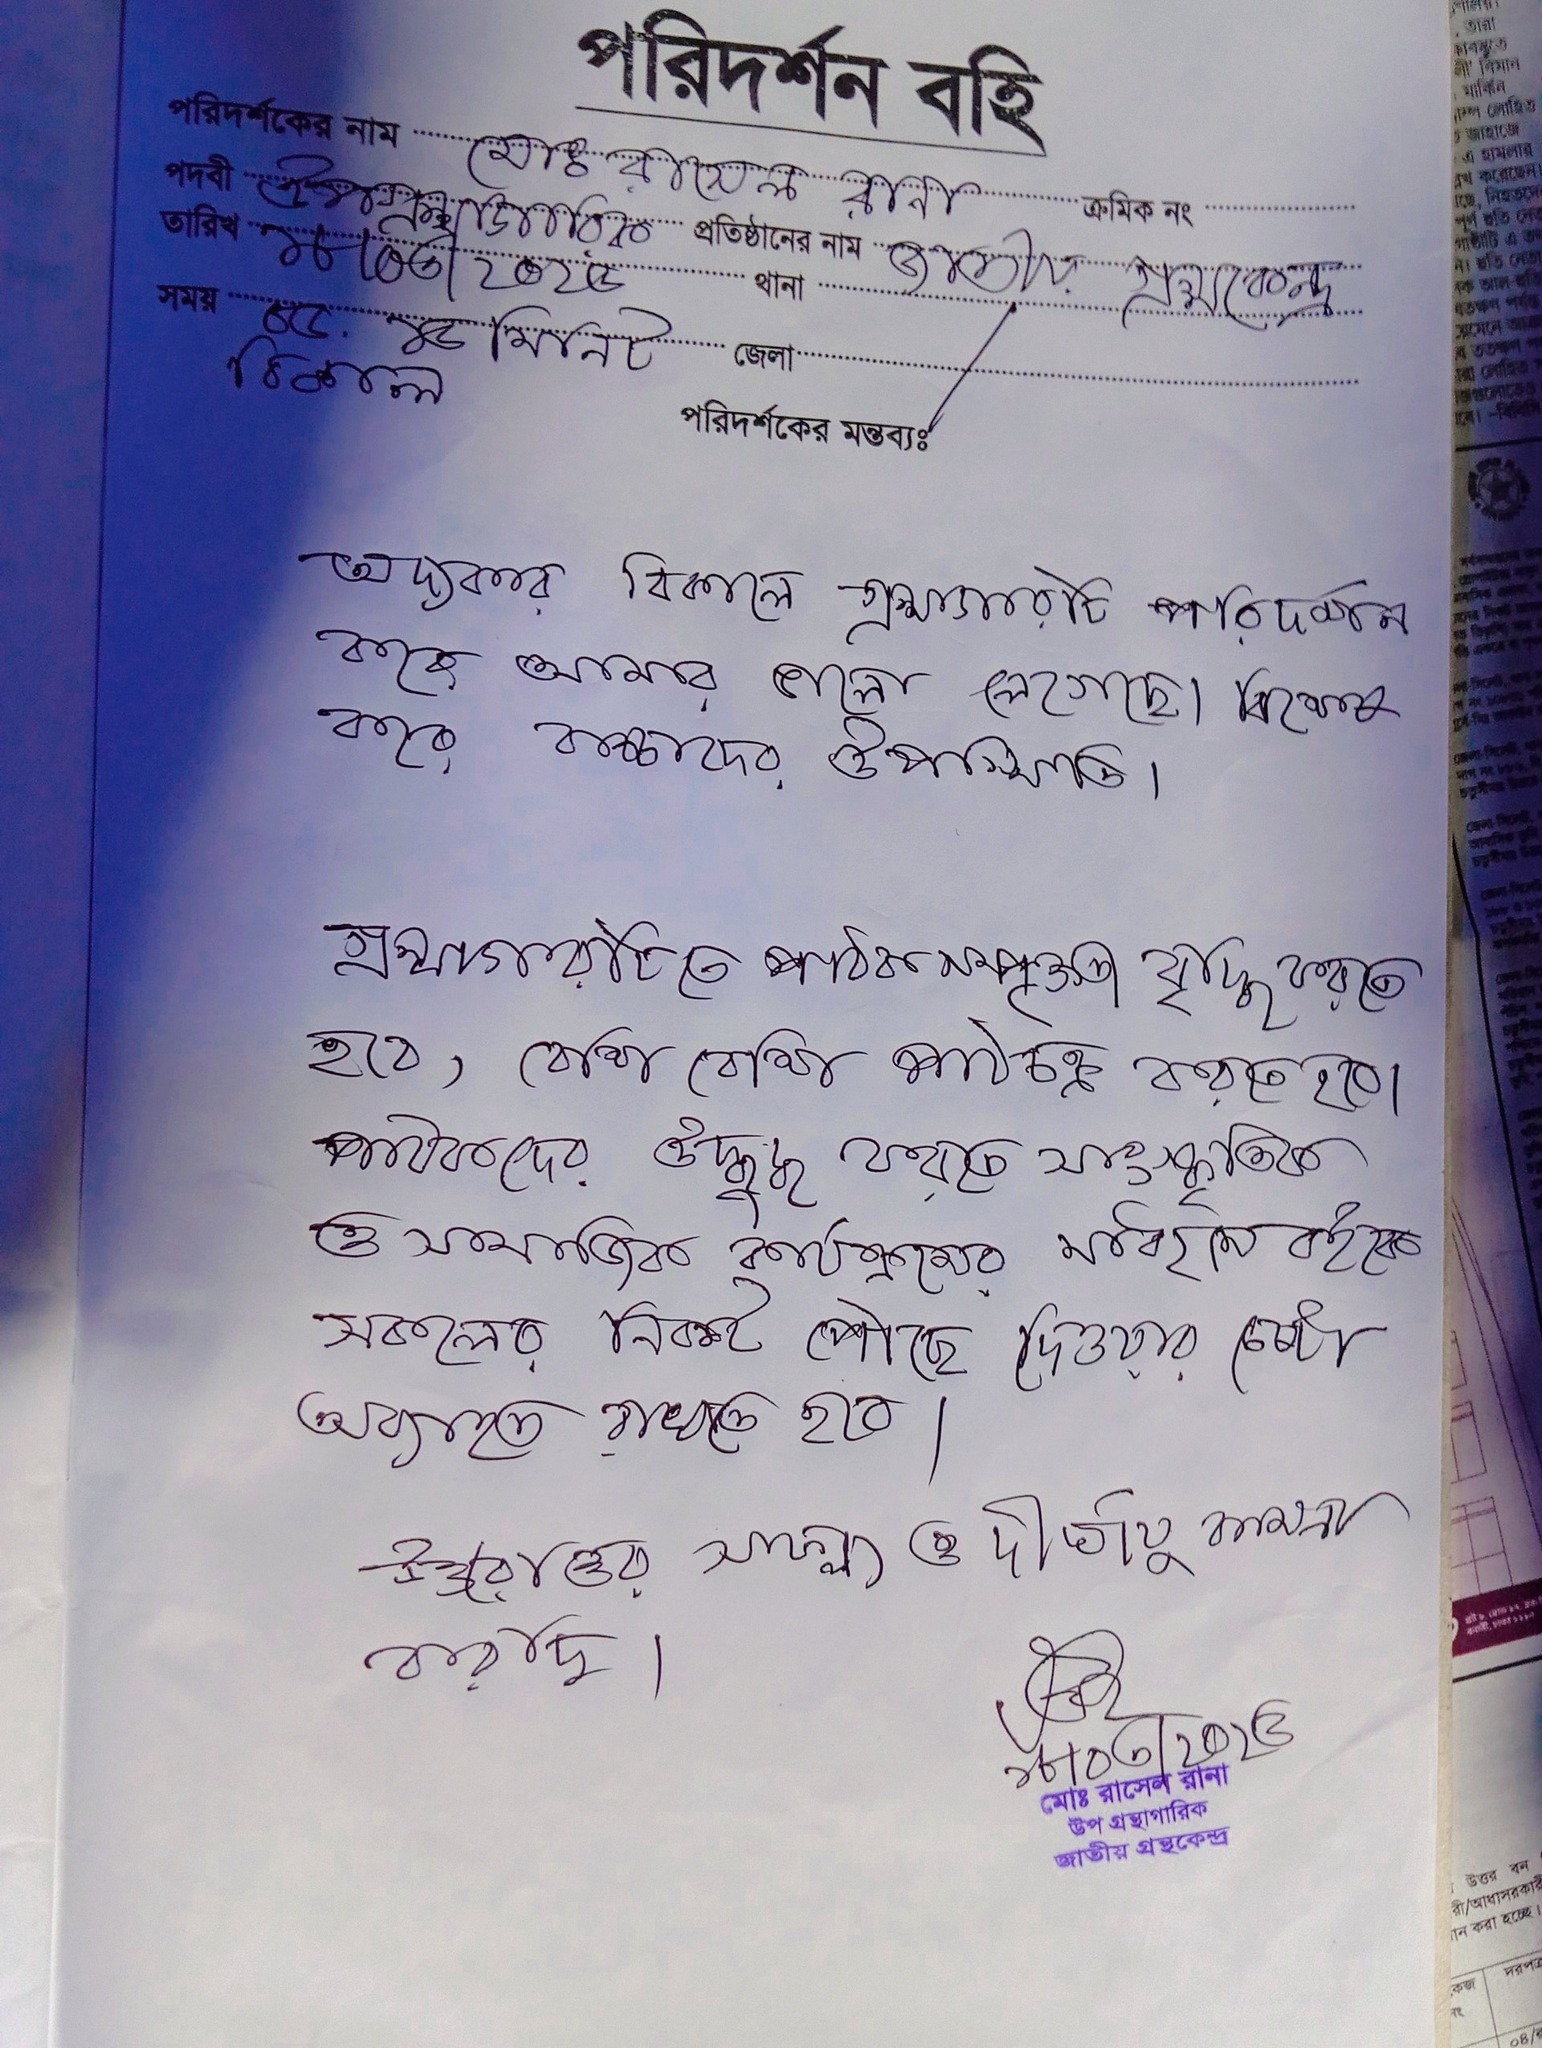 পরিদর্শন বহি
পরিদর্শকের নাম মোঃ রাসেল রানা ক্রমিক নং
পদবী উপগ্রন্থাগারিক প্রতিষ্ঠানের নাম জাতীয় গ্রন্থকেন্দ্র
তারিখ ১৮/০৩/২০২৫ থানা
সময় ০৫. ১৫ মিনিট জেলা
বিকাল
পরিদর্শকের মন্তব্যঃ
অদ্যকার বিকালে গ্রন্থাগারটি পরিদর্শন
করে আমার ভালো লেগেছে। বিশেষ
করে বাচ্চাদের উপস্থিতি।
গ্রন্থাগারটিতে পাঠক সম্পৃক্ততা বৃদ্ধি করতে
হবে, বেশি বেশি পাঠচক্র করতে হবে।
পাঠকদের উদ্বুদ্ধ করতে সাংস্কৃতিক
ও সামাজিক কার্যক্রমের বইকে
সকলের নিকট পৌছে দিওয়ার চেষ্টা
অব্যাহত রাখতে হবে।
উত্তরোত্তর সাফল্য ও দীর্ঘায়ু কামনা
করছি।
মোঃ রাসেল রানা
উপ গ্রন্থাগারিক
জাতীয় গ্রন্থকেন্দ্র